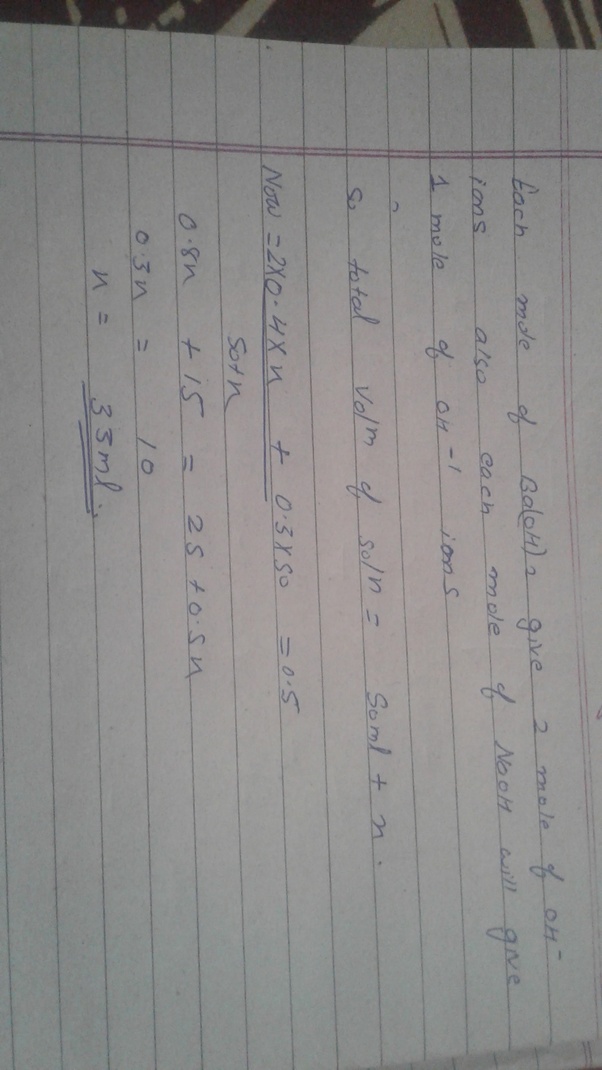 Each mole of Ba(OH)2 give 2 mole of OH-
ions also each mole of NaOH will give
1 mole of OH-1 ions
so total volm of soln = 50ml + x.
Now = 2×0.4×x + 0.3×50 = 0.5
50+x
0.8x + 15 = 25 + 0.5x
0.3x = 10
x = 33ml.